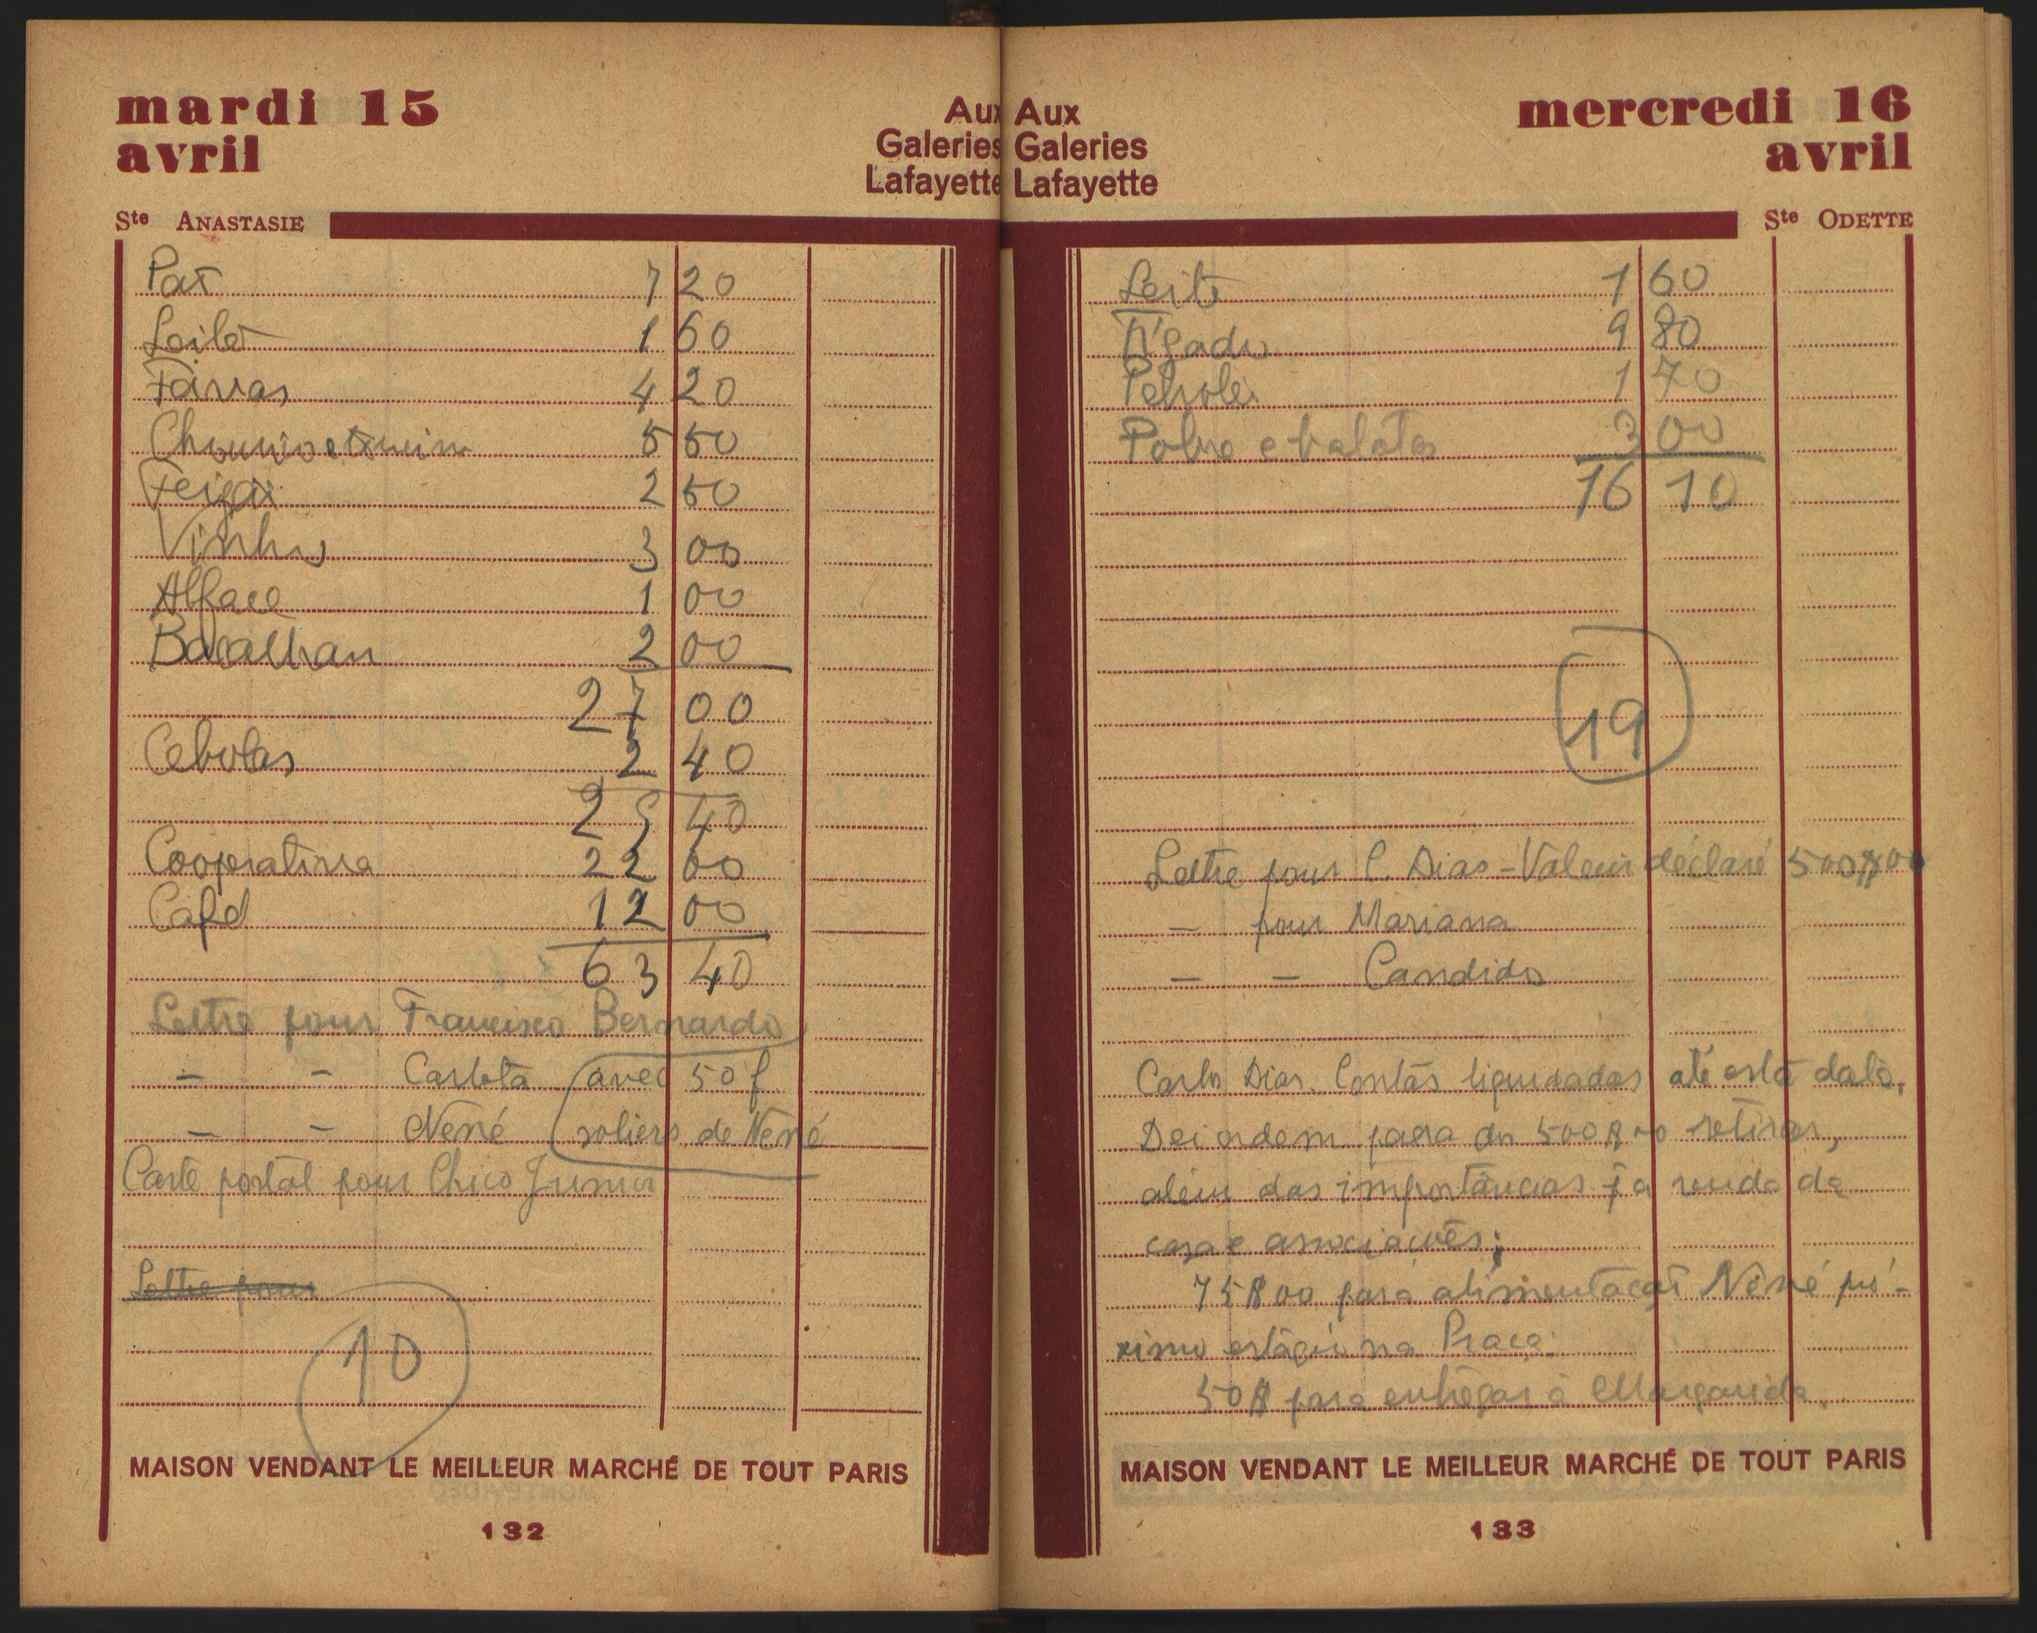 mardi 15
avril
Aux
Galeries
Lafayette
Ste ANASTASIE
Pāt 7 20
Leite 1 60
Favas 4 20
Chouriço e toucinho 5 50
Feijão 2 50
Vinho 3 00
Alface 1 00
Bacalhau 2 00
27 00
Cebolas 2 40
29 40
Cooperativa 22 00
Café 12 00
63 40
Lettre pour Francisco Bernardo
— — Carlota (avec 50 f
— — Nené soliers de Nené
Carte postal pour Chico Junior
Lettre pour
10
MAISON VENDANT LE MEILLEUR MARCHÉ DE TOUT PARIS
132
Aux
Galeries
Lafayette
mercredi 16
avril
Ste ODETTE
Leite 1 60
9 80
Petroleo 1 70
e batatas 3 00
16 10
19
Lettre pour C. Dias - Valeur déclaré 500$00
— pour Mariana
— — Candido
Carlos Dias. Contas liquidadas até esta data.
Dei ordem para os 500$00 retirar,
além das importâncias da renda da
casa e associações;
75$00 para alimentação Nené pró-
ximo estágio na Praça.
50$ para entregar à Margarida.
MAISON VENDANT LE MEILLEUR MARCHÉ DE TOUT PARIS
133